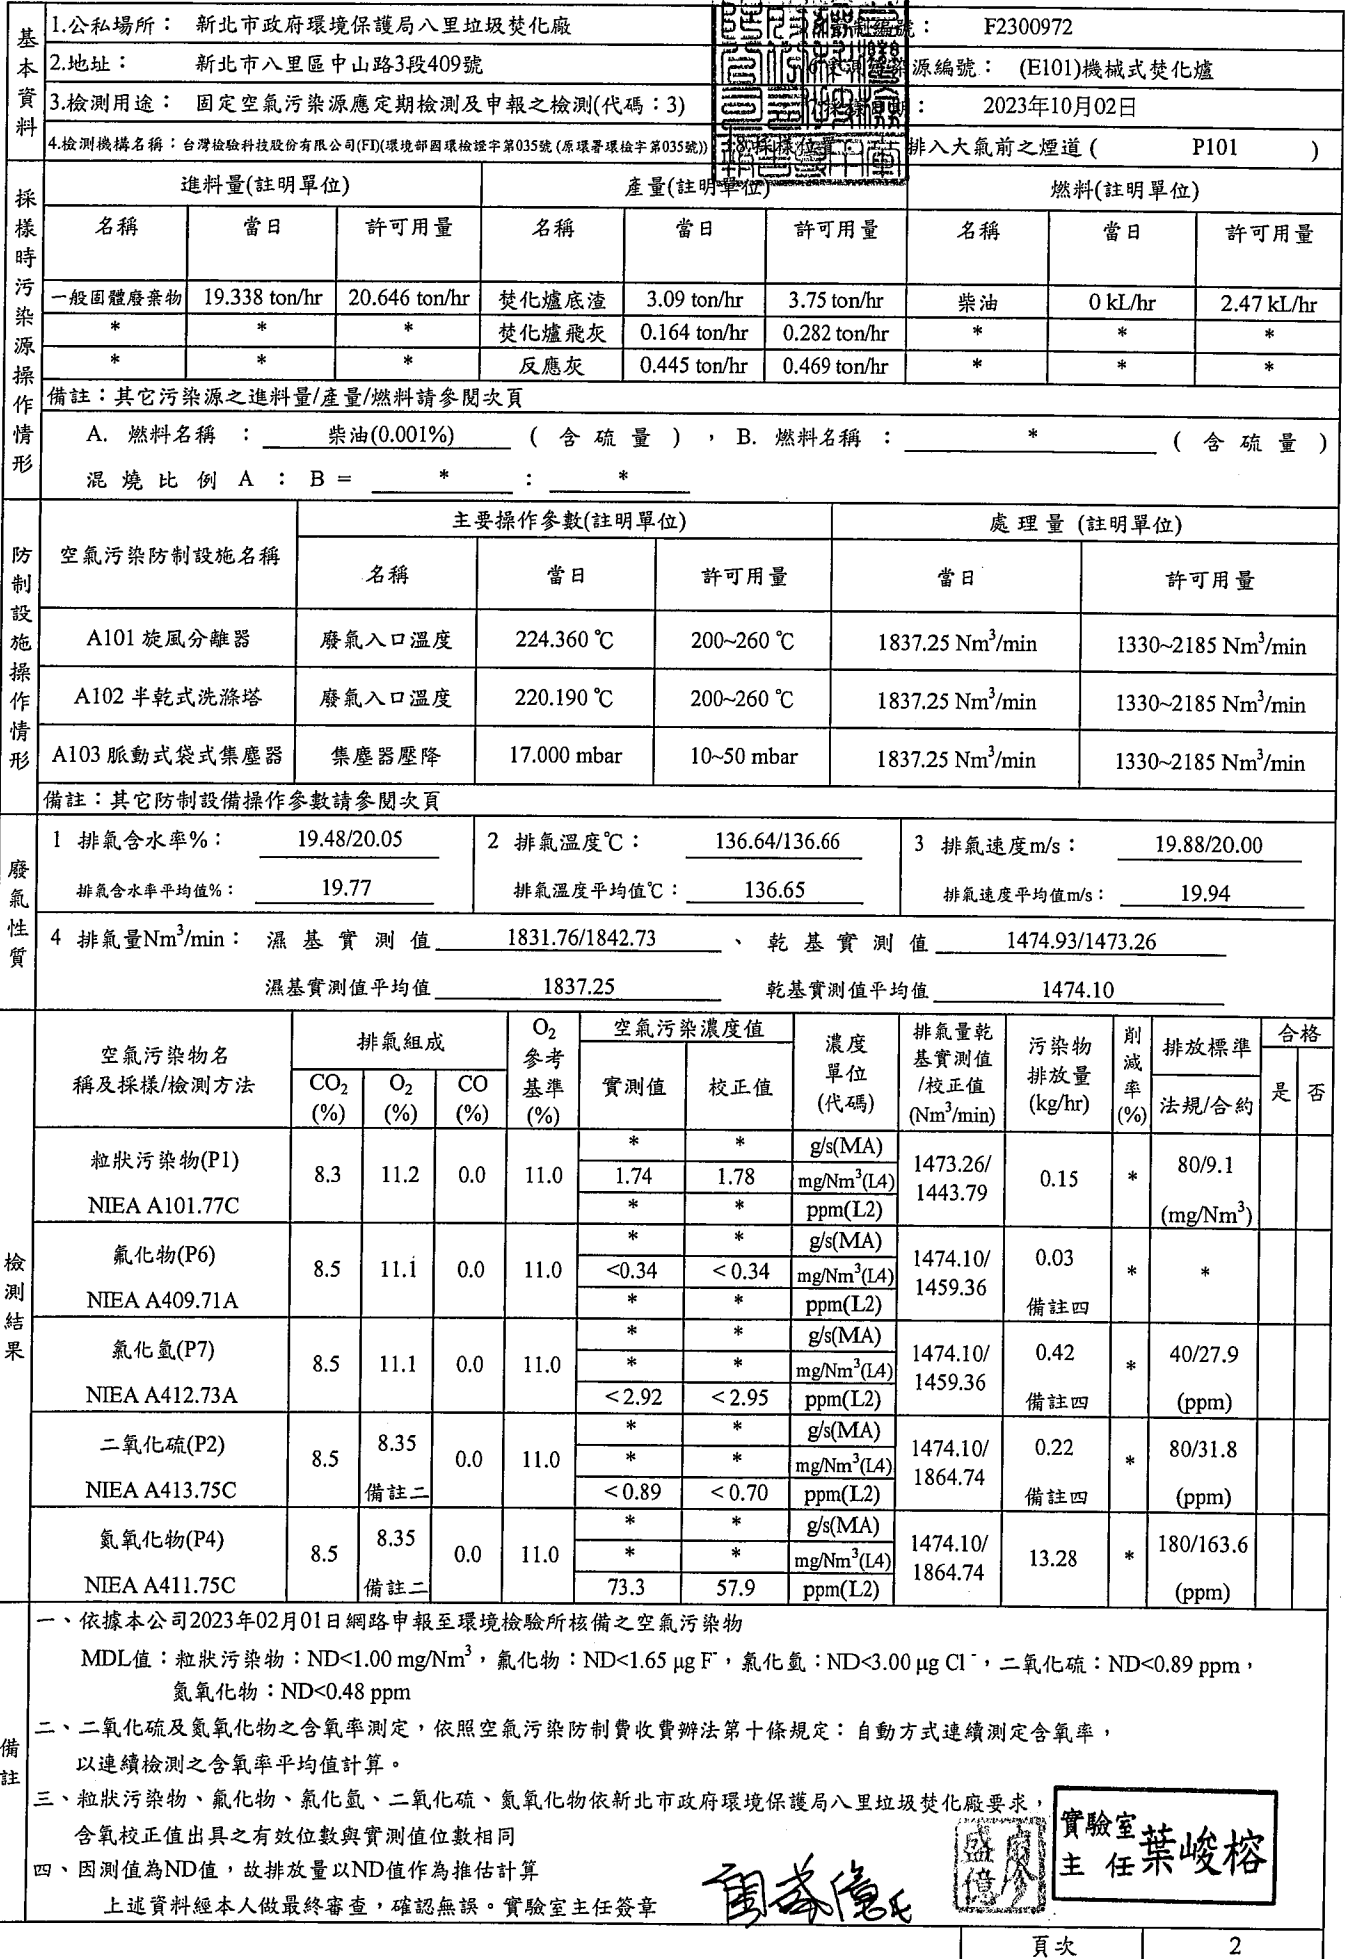 基本資料
1.公私場所： 新北市政府環境保護局八里垃圾焚化廠
編號： F2300972
2.地址： 新北市八里區中山路3段409號
源編號： (E101)機械式焚化爐
3.檢測用途： 固定空氣污染源應定期檢測及申報之檢測(代碼：3)
2023年10月02日
4.檢測機構名稱：台灣檢驗科技股份有限公司(FI)(環境部國環檢證字第035號(原環署環檢字第035號))
排入大氣前之煙道( P101 )
採樣時污染源操作情形
進料量(註明單位) 產量(註明單位) 燃料(註明單位)
名稱 當日 許可用量 名稱 當日 許可用量 名稱 當日 許可用量
一般固體廢棄物 19.338 ton/hr 20.646 ton/hr 焚化爐底渣 3.09 ton/hr 3.75 ton/hr 柴油 0 kL/hr 2.47 kL/hr
* * * 焚化爐飛灰 0.164 ton/hr 0.282 ton/hr * * *
* * * 反應灰 0.445 ton/hr 0.469 ton/hr * * *
備註：其它污染源之進料量/產量/燃料請參閱次頁
A. 燃料名稱 ： 柴油(0.001%) (含硫量)，B. 燃料名稱： * (含硫量)
混燒比例 A：B＝ * ： *
防制設施操作情形
空氣污染防制設施名稱 主要操作參數(註明單位) 處理量 (註明單位)
名稱 當日 許可用量 當日 許可用量
A101 旋風分離器 廢氣入口溫度 224.360 ℃ 200~260 ℃ 1837.25 Nm³/min 1330~2185 Nm³/min
A102 半乾式洗滌塔 廢氣入口溫度 220.190 ℃ 200~260 ℃ 1837.25 Nm³/min 1330~2185 Nm³/min
A103 脈動式袋式集塵器 集塵器壓降 17.000 mbar 10~50 mbar 1837.25 Nm³/min 1330~2185 Nm³/min
備註：其它防制設備操作參數請參閱次頁
廢氣性質
1 排氣含水率%： 19.48/20.05 2 排氣溫度℃： 136.64/136.66 3 排氣速度m/s： 19.88/20.00
排氣含水率平均值%： 19.77 排氣溫度平均值℃： 136.65 排氣速度平均值m/s： 19.94
4 排氣量Nm³/min： 濕基實測值 1831.76/1842.73 、 乾基實測值 1474.93/1473.26
濕基實測值平均值 1837.25 乾基實測值平均值 1474.10
檢測結果
空氣污染物名稱及採樣/檢測方法 排氣組成 O₂參考基準(%) 空氣污染濃度值 濃度單位(代碼) 排氣量乾基實測值/校正值(Nm³/min) 污染物排放量(kg/hr) 削減率(%) 排放標準 合格
CO₂(%) O₂(%) CO(%) 實測值 校正值 法規/合約 是 否
* * g/s(MA)
粒狀污染物(P1) NIEA A101.77C 8.3 11.2 0.0 11.0 1.74 1.78 mg/Nm³(L4) 1473.26/1443.79 0.15 * 80/9.1 (mg/Nm³)
* * ppm(L2)
* * g/s(MA)
氟化物(P6) NIEA A409.71A 8.5 11.1 0.0 11.0 <0.34 <0.34 mg/Nm³(L4) 1474.10/1459.36 0.03 備註四 * *
* * ppm(L2)
* * g/s(MA)
氯化氫(P7) NIEA A412.73A 8.5 11.1 0.0 11.0 * * mg/Nm³(L4) 1474.10/1459.36 0.42 備註四 * 40/27.9 (ppm)
<2.92 <2.95 ppm(L2)
* * g/s(MA)
二氧化硫(P2) NIEA A413.75C 8.5 8.35 備註二 0.0 11.0 * * mg/Nm³(L4) 1474.10/1864.74 0.22 備註四 * 80/31.8 (ppm)
<0.89 <0.70 ppm(L2)
* * g/s(MA)
氮氧化物(P4) NIEA A411.75C 8.5 8.35 備註二 0.0 11.0 * * mg/Nm³(L4) 1474.10/1864.74 13.28 * 180/163.6 (ppm)
73.3 57.9 ppm(L2)
備註
一、依據本公司2023年02月01日網路申報至環境檢驗所核備之空氣污染物
MDL值：粒狀污染物：ND<1.00 mg/Nm³，氟化物：ND<1.65 μg F⁻，氯化氫：ND<3.00 μg Cl⁻，二氧化硫：ND<0.89 ppm，
氮氧化物：ND<0.48 ppm
二、二氧化硫及氮氧化物之含氧率測定，依照空氣污染防制費收費辦法第十條規定：自動方式連續測定含氧率，
以連續檢測之含氧率平均值計算。
三、粒狀污染物、氟化物、氯化氫、二氧化硫、氮氧化物依新北市政府環境保護局八里垃圾焚化廠要求，
含氧校正值出具之有效位數與實測值位數相同
四、因測值為ND值，故排放量以ND值作為推估計算
上述資料經本人做最終審查，確認無誤。實驗室主任簽章
廖盛億
實驗室主任 葉峻榕
頁次 2